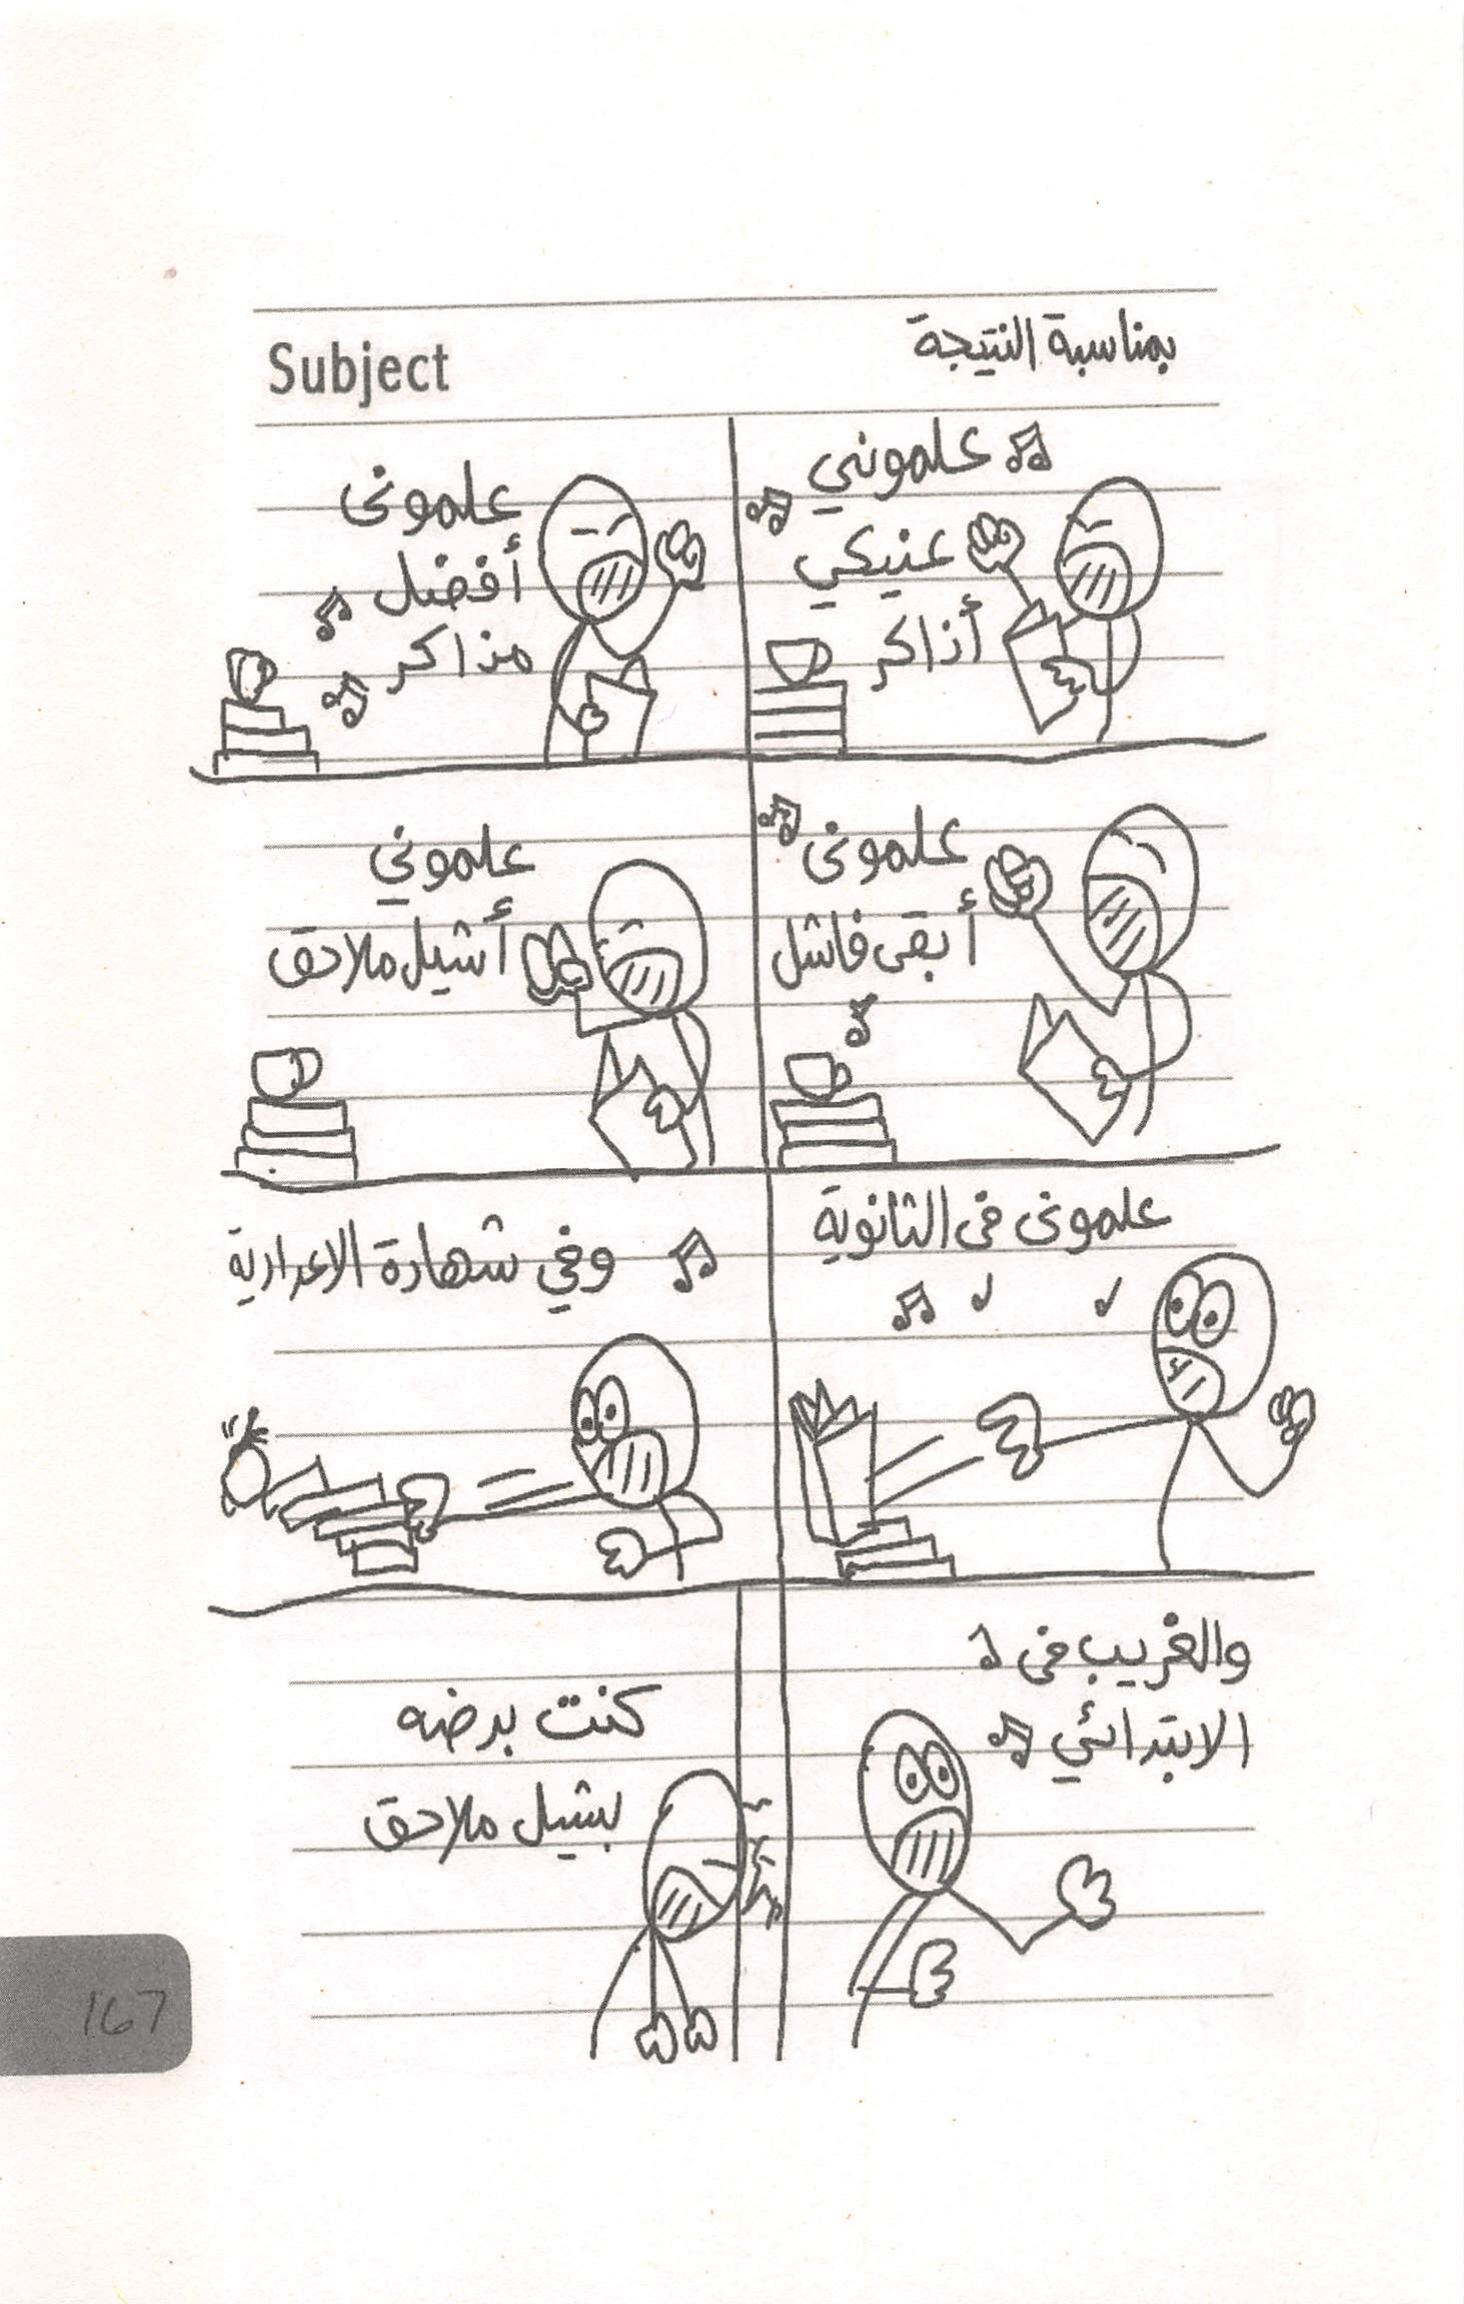 Subject
بمناسبة النتيجة
علموني
عنيكي
أذاكر
علمونى
أفضل
مذاكر
علمونى
أبقى فاشل
علموني
أشيل ملاحق
علمونى فى الثانوية
وفي شهادة الاعدادية
والغريب فى
الابتدائي
كنت برضه
بشيل ملاحق
167